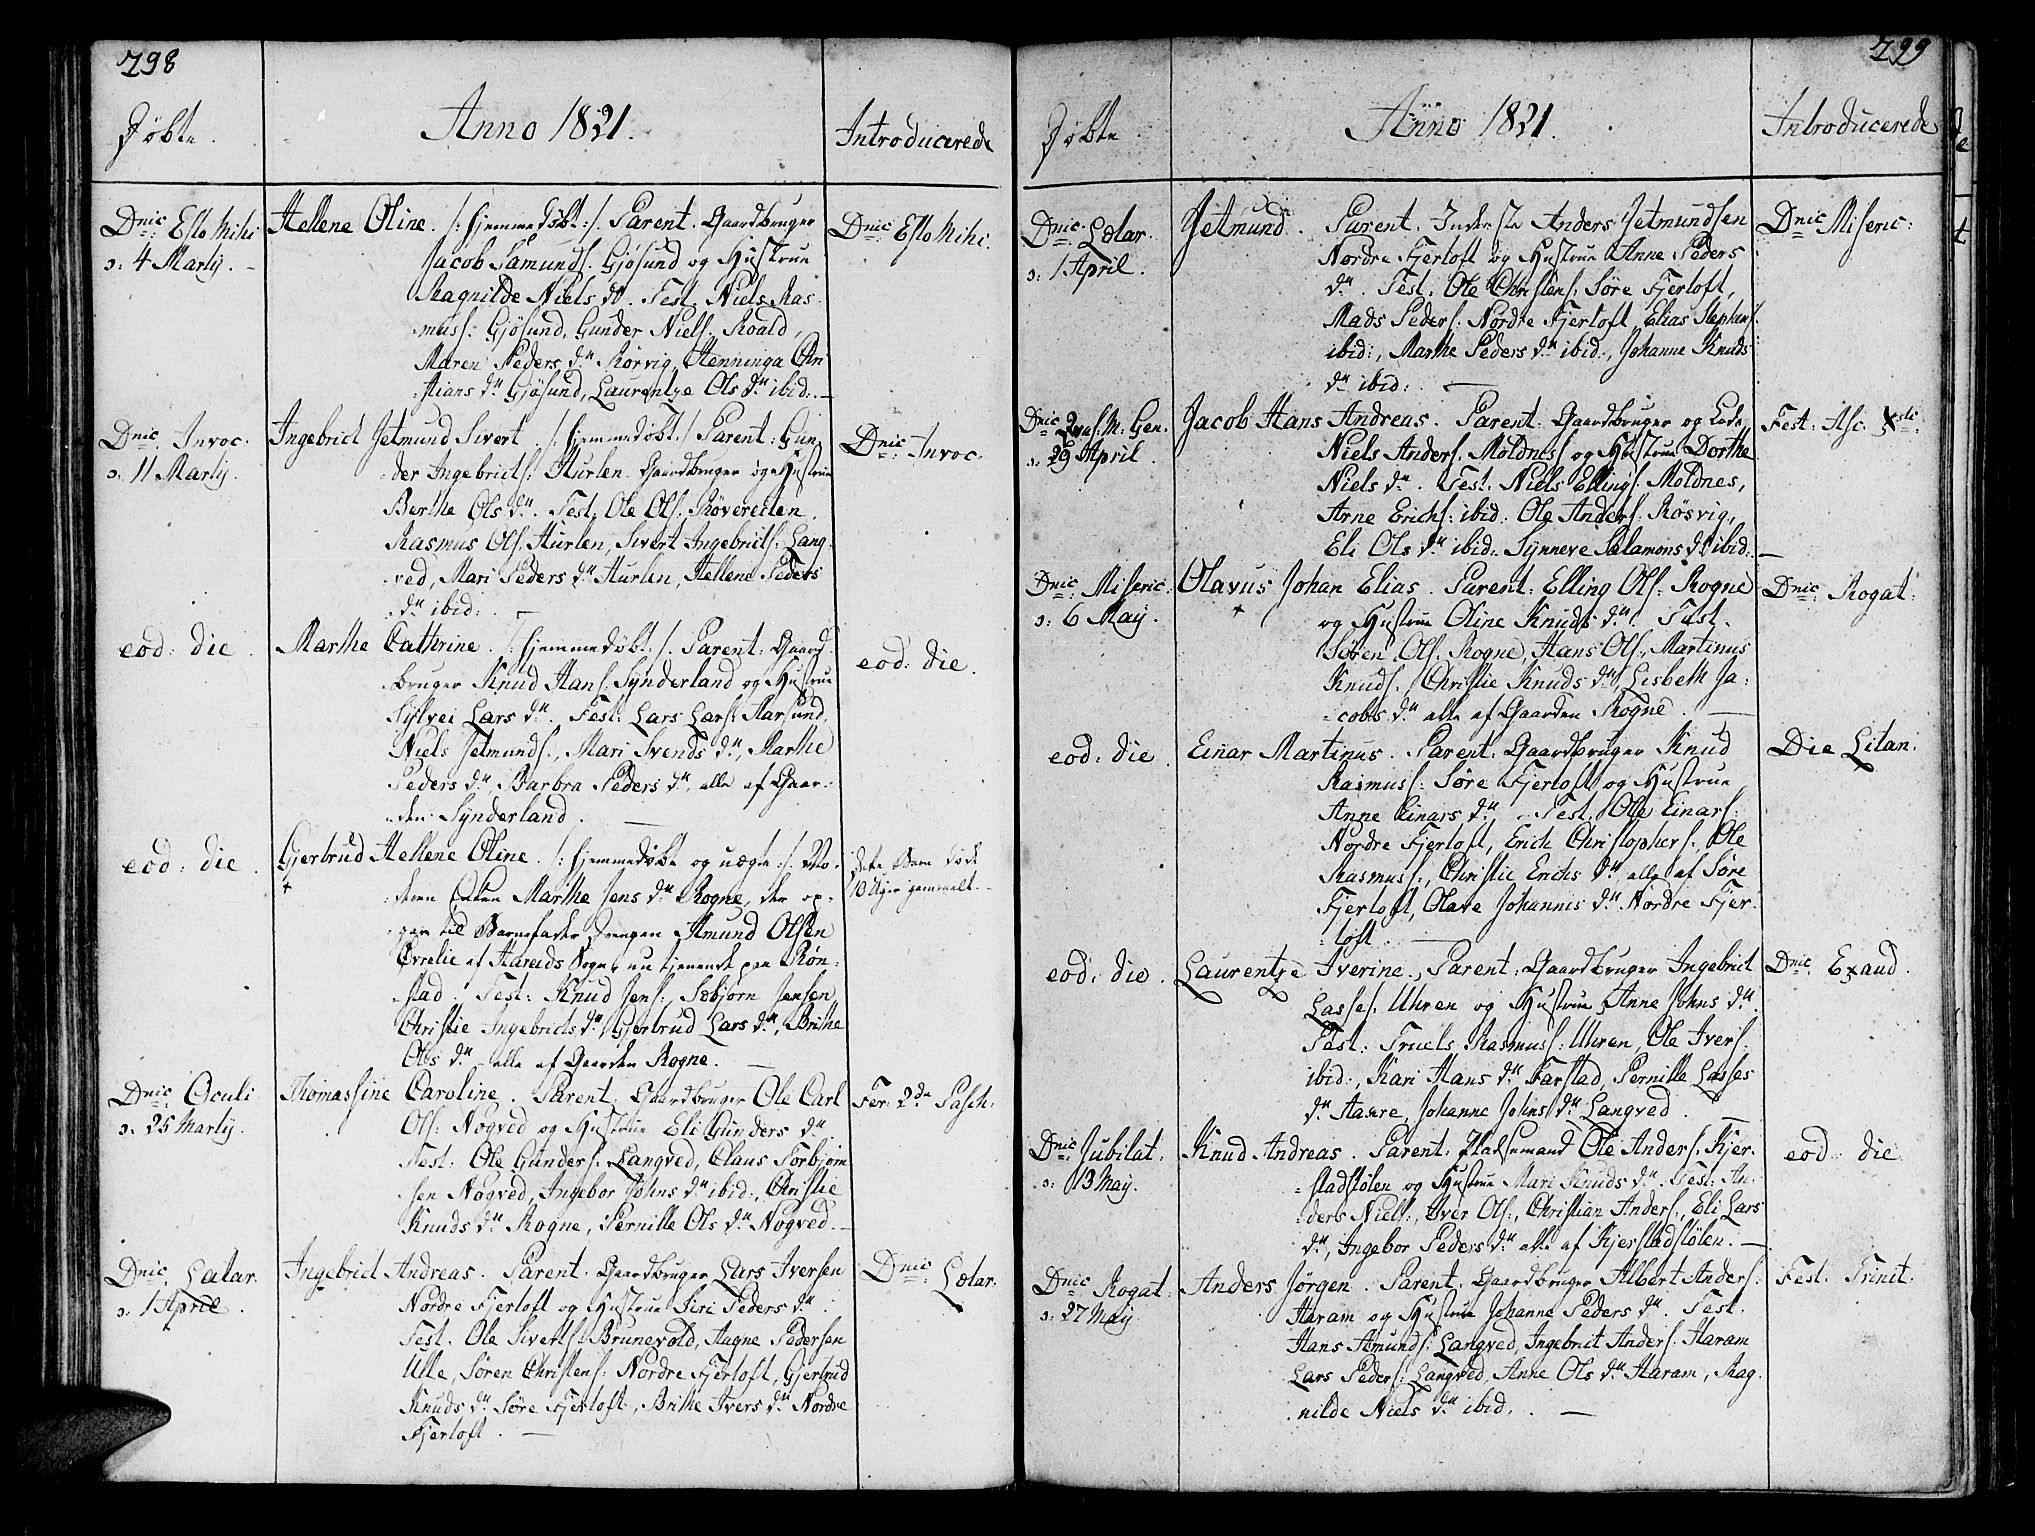 298
Døbte.
Anno 1821.
Introducerede
Dnic: Esto Mihi
ɔ: 4 Martij.
Hellene Oline. /: hjemmedøbt :/. Parent. Gaardbruger
Jacob Samunds. Gjøsund og Hustrue
Ragnilde Niels dr. Test. Niels Ras-
muss: Gjøsund, Gunder Niels: Roald,
Maren Peders dr Rørvig, Henninga Chri-
stians dr Gjøsund, Laurentze Ols dr ibid:
Dnic: Esto Mihi.
Dnic: Invoc:
ɔ: 11 Martij.
Ingebrict Jetmund Sivert. /: hjemmedøbt :/ Parent: Gun-
der Ingebricts: Hurlen Gaardbruger og Hustrue
Berthe Ols dr. Test. Ole Ols. Røvereiten.
Rasmus Ols. Hurlen, Sivert Ingebricts: Lang-
ved, Mari Peders dr Hurlen, Hellene Peders
dr ibid:
Dnic: Invoc.
eod: die.
Marthe Cathrine. /: hjemmedøbt :/. Parent: Gaard-
bruger Knud Hans. Synderland og Hustrue
Sylvei Lars dr. Test: Lars Lars: Aarsund,
Niels Jetmunds., Mari Svends dr, Marthe
Peders dr, Barbra Peders dr, alle af Gaar-
den Synderland.
eod: die.
eod: die.
Gjertrud Hellene Oline. /: hjemmedøbt og uægte :/. Mo-
deren Enken Marthe Jens dr Rogne, der op-
gav til Barnefader Drengen Amund Olsen
Øvrelie af Hareids Sogn, nu tjenende paa Røn-
stad. Test: Knud Jens:, Sæbjørn Jensen,
Christie Ingebricts dr, Gjertrud Lars dr, Brithe
Ols dr alle af Gaarden Rogne.
Dette Barn døde
10 Uger gammelt.
Dnic: Oculi
ɔ: 25 Martij.
Thomassine Caroline. Parent. Gaardbruger Ole Carl
Ols: Nogved og Hustrue Eli Gunders dr
Test. Ole Gunders. Langved, Claus Torbjørn-
sen Nogved, Ingebor Johns dr ibid:, Christie
Knuds dr Rogne, Pernille Ols dr Nogved.
Fer: 2da Pasch:
Dnic: Lætar.
ɔ: 1 April.
Ingebrict Andreas. Parent. Gaardbruger Lars Iversen
Nordre Fjertoft og Hustrue Siri Peders dr.
Test. Ole Siverts: Brunevold, Aagne Pedersen
Ulle, Søren Christens: Nordre Fjertoft, Gjertrud
Knuds dr Søre Fjertoft, Brithe Ivers dr Nordre
Fjertoft.
Dnic: Lætar.
299
Døbte
Anno 1821.
Introducerede
Dnic: Lætar.
ɔ: 1 April.
Jetmund. Parent. Inderste Anders Jetmundsen
Nordre Fjertoft og Hustrue Anne Peders
dr. Test. Ole Christens: Søre Fjertoft,
Mads Peders: Nordre Fjertoft, Elias Stephens.
ibid:, Marthe Peders dr ibid:, Johanne Knuds
dr ibid:
Dnic: Miseric:
Dnic: Quas: M: Gen.
ɔ: 29 April.
Jacob Hans Andreas. Parent. Gaardbruger og Lods
Niels Anders. Moldnes og Hustrue Dorthe
Niels dr. Test. Niels Ellings. Moldnes,
Arne Erichs: ibid: Ole Anders. Røsvig,
Eli Ols dr ibid: Synneve Salamons dr ibid:
Fest: Asc: Xsti.
Dnic: Miseric:
ɔ: 6 May.
Olavus Johan Elias. Parent: Elling Ols: Rogne
og Hustrue Oline Knuds dr. Test.
Søren Ols. Rogne, Hans Ols., Martinus
Knuds., Christie Knuds dr, Lisbeth Ja-
cobs dr alle af Gaarden Rogne.
Dnic: Rogat:
eod: die.
Einar Martinus. Parent: Gaardbruger Knud
Rasmuss: Søre Fjertoft og Hustrue
Anne Einars dr. Test. Ole Einars:
Nordre Fjertoft, Erich Christophers:, Ole
Rasmuss:, Christie Erichs dr alle af Søre
Fjertoft, Olave Johannis dr Nordre Fjer-
toft.
Die Litan:
eod: die.
Laurentze Iverine. Parent: Gaardbruger Ingebrict
Lasses. Uhren og Hustrue Anne Johns dr.
Test: Truels Rasmuss: Uhren, Ole Ivers:
ibid:, Kari Hans dr Farstad, Pernille Lasses
dr Aakre, Johanne Johns dr Langved.
Dnic: Exaud.
Dnic: Jubilat.
ɔ: 13 May.
Knud Andreas. Parent: Pladsemand Ole Anders. Kjer-
stadstølen og Hustrue Mari Knuds dr. Test: An-
ders Niels:, Iver Ols:, Christian Anders., Eli Lars
dr, Ingebor Peders dr alle af Kjerstadstølen.
eod: die.
Dnic: Rogat:
ɔ: 27 May.
Anders Jørgen. Parent: Gaardbruger Albert Anders:
Haram og Hustrue Johanne Peders dr. Test.
Hans Amunds: Langved, Ingebrict Anders. Haram
Lars Peders: Langved, Anne Ols dr Haram, Rag-
nilde Niels dr ibid.
Fest. Trinit.